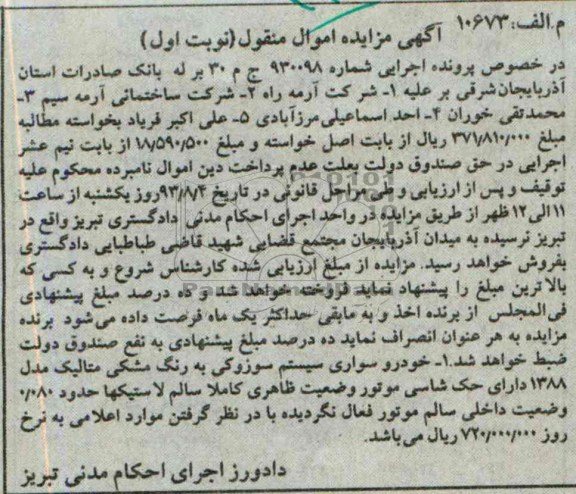 م.الف: ۱۰۶۷۳
آگهی مزایده اموال منقول (نوبت اول)
در خصوص پرونده اجرایی شماره ۹۳۰۰۹۸ ج م ۳۰ بر له بانک صادرات استان
آذربایجان‌شرقی بر علیه ۱- شرکت آرمه راه ۲- شرکت ساختمانی آرمه سیم ۳-
محمدتقی خوران ۴- احد اسماعیلی‌مرزآبادی ۵- علی اکبر فریاد بخواسته مطالبه
مبلغ ۳۷۱/۸۱۰/۰۰۰ ریال از بابت اصل خواسته و مبلغ ۱۸/۵۹۰/۵۰۰ از بابت نیم عشر
اجرایی در حق صندوق دولت بعلت عدم پرداخت دین اموال نامبرده محکوم علیه
توقیف و پس از ارزیابی و طی مراحل قانونی در تاریخ ۹۳/۸/۴ روز یکشنبه از ساعت
۱۱ الی ۱۲ ظهر از طریق مزایده در واحد اجرای احکام مدنی دادگستری تبریز واقع در
تبریز نرسیده به میدان آذربایجان مجتمع قضایی شهید قاضی طباطبایی دادگستری
بفروش خواهد رسید. مزایده از مبلغ ارزیابی شده کارشناس شروع و به کسی که
بالاترین مبلغ را پیشنهاد نماید فروخته خواهد شد و ده درصد مبلغ پیشنهادی
فی‌المجلس از برنده اخذ و به مابقی حداکثر یک ماه فرصت داده می‌شود برنده
مزایده به هر عنوان انصراف نماید ده درصد مبلغ پیشنهادی به نفع صندوق دولت
ضبط خواهد شد.۱- خودرو سواری سیستم سوزوکی به رنگ مشکی متالیک مدل
۱۳۸۸ دارای حک شاسی موتور وضعیت ظاهری کاملا سالم لاستیکها حدود ۰/۰۸۰
وضعیت داخلی سالم موتور فعال نگردیده با در نظر گرفتن موارد اعلامی به نرخ
روز ۷۲۰/۰۰۰/۰۰۰ ریال می‌باشد.
دادورز اجرای احکام مدنی تبریز